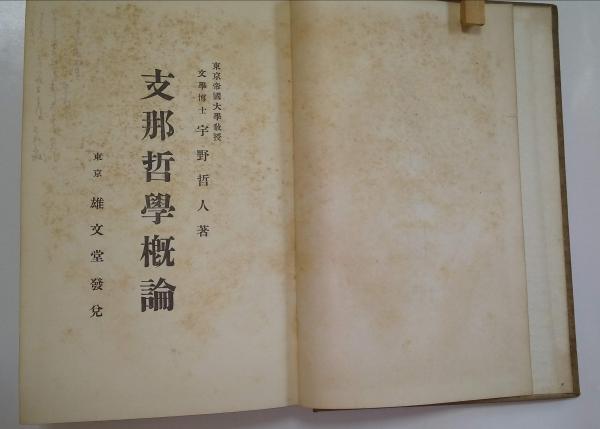 東京帝國大學教授
文學博士 宇野哲人著
支那哲學概論
東京 雄文堂發兌